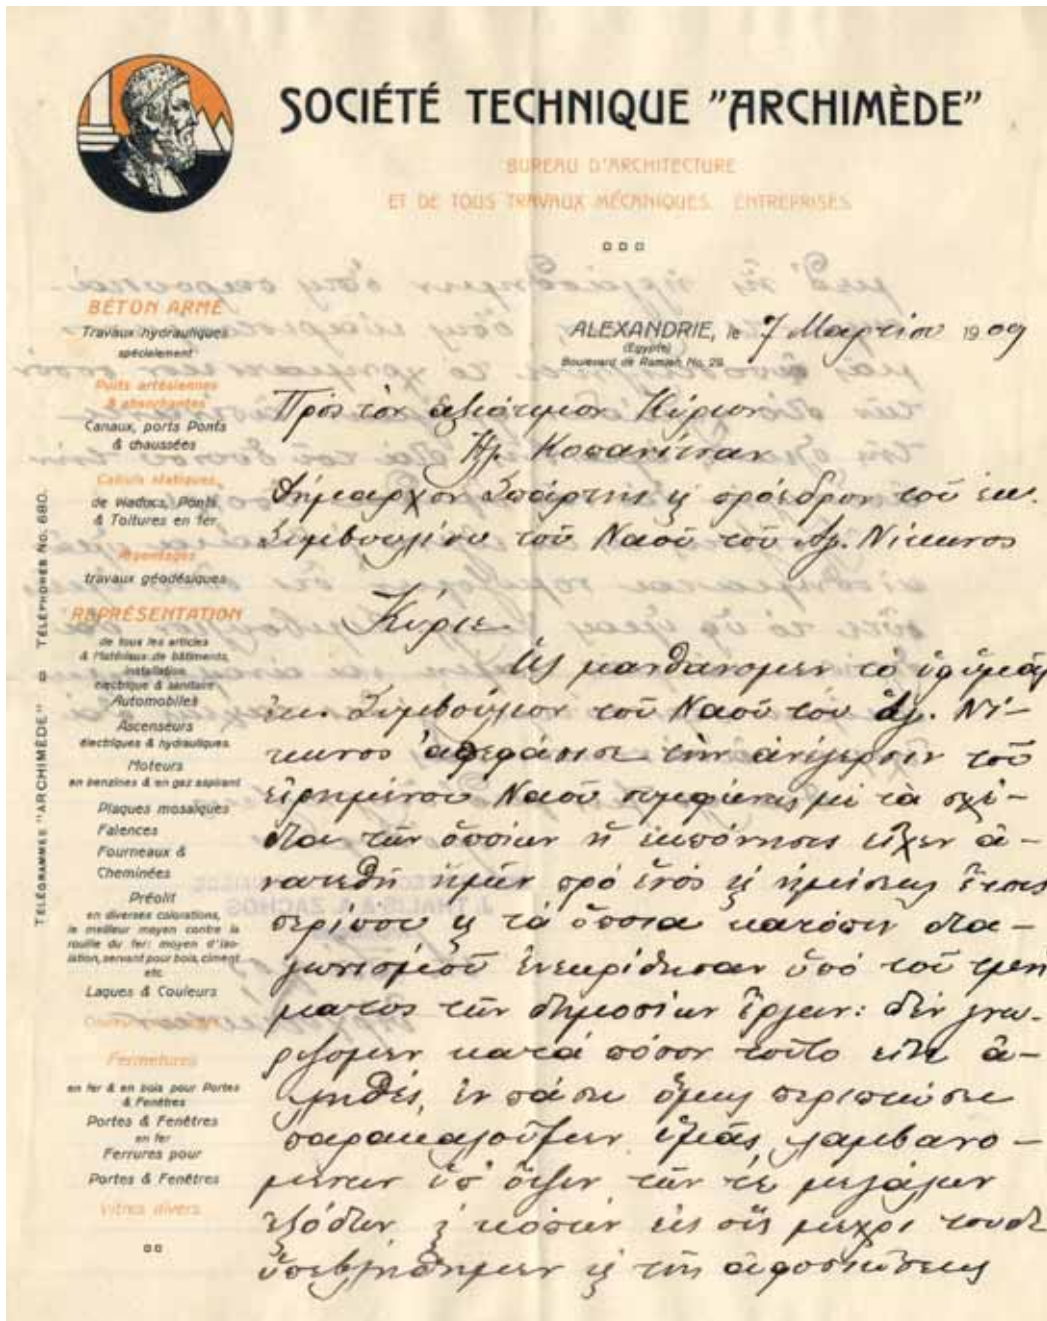 SOCIÉTÉ TECHNIQUE "ARCHIMÈDE"
BUREAU D'ARCHITECTURE
ET DE TOUS TRAVAUX MÉCANIQUES. ENTREPRISES
ALEXANDRIE, le 7 Μαρτίου 1909
(Egypte)
Boulevard de Ramleh, No. 29.
TÉLÉGRAMME "ARCHIMÈDE" TÉLÉPHONES No. 680.
BÉTON ARMÉ
Travaux hydrauliques
spécialement
Puits artésiennes
& absorbantes
Canaux, ports Ponts
& chaussées
Calculs statiques
de Viaducs, Ponts
& Toitures en fer
Arpentages
travaux géodésiques
REPRÉSENTATION
de tous les articles
& Matériaux de bâtiments,
installation
électrique & sanitaire
Automobiles
Ascenseurs
électriques & hydrauliques.
Moteurs
en benzines & en gaz aspirant
Plaques mosaïques
Falences
Fourneaux &
Cheminées
Préolit
en diverses colorations,
le meilleur moyen contre la
rouille du fer: moyen d'iso-
lation, servant pour bois, ciment
etc.
Laques & Couleurs
Fermetures
en fer & en bois pour Portes
& Fenêtres
Portes & Fenêtres
en fer
Ferrures pour
Portes & Fenêtres
vitres divers
Πρὸς τὸν ἀξιότιμον Κύριον
Δήμαρχον Σπάρτης ϗ πρόεδρον τοῦ ἐκ.
Συμβουλίου τοῦ Ναοῦ τοῦ Ἁγ. Νίκωνος
Κύριε
Ὡς μανθάνομεν τὸ ὑφ' ὑμᾶς
ἐκ. Συμβούλιον τοῦ Ναοῦ τοῦ Ἁγ. Νί-
κωνος ἀπεφάσισε τὴν ἀνέγερσιν τοῦ
εἰρημένου Ναοῦ συμφώνως μὲ τὰ σχέ-
δια τῶν ὁποίων ἡ ἐκπόνησις εἶχεν ἀ-
νατεθῆ ἡμῖν πρὸ ἑνὸς ϗ ἡμίσεως ἔτους
περίπου ϗ τὰ ὁποῖα κατόπιν δια-
γωνισμοῦ ἐνεκρίθησαν ὑπὸ τοῦ τμή
ματος τῶν δημοσίων ἔργων: δὲν γνω-
ρίζομεν κατὰ πόσον τοῦτο εἶνε ἀ-
ληθές, ἐν πάσῃ ὅμως περιπτώσει
παρακαλοῦμεν ὑμᾶς, λαμβανο-
μένων ὑπ' ὄψιν τῶν τε μεγάλων
ἐξόδων ϗ κόπων εἰς οὓς μέχρι τοῦδε
ὑπεβλήθημεν ϗ τῆς ἀφοσιώσεως